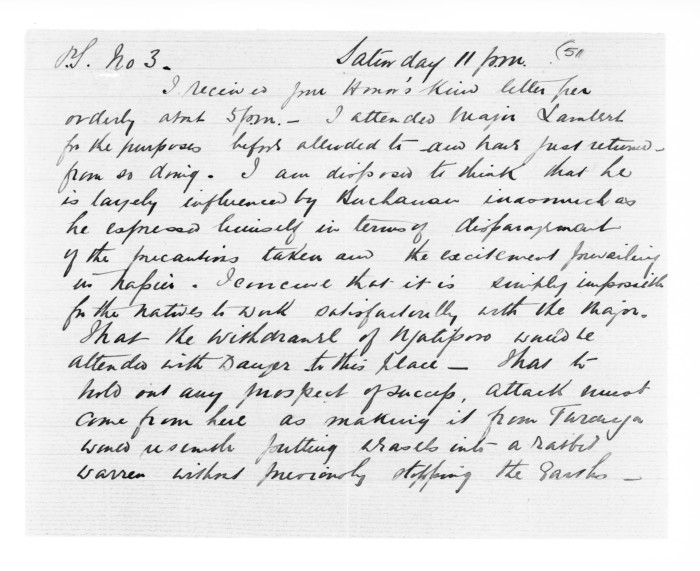 P.S. No 3. Saturday 11 pm. (51
I received your Honor's kind letter per
orderly about 5 pm. - I attended Major Lambert
for the purposes before alluded to and have just returned -
from so doing. I am disposed to think that he
is largely influenced by Buchanan inasmuch as
he expressed himself in terms of disparagement
of the precautions taken and the excitement prevailing
in Napier. I conceive that it is simply impossible
for the natives to work satisfactorily with the Major.
That the withdrawal of Ngatiporo would be
attended with Danger to this place - That to
hold out any prospect of success, attack must
come from here as making it from Turanga
would resemble putting weasels into a rabbit
warren without previously stopping the Earths -